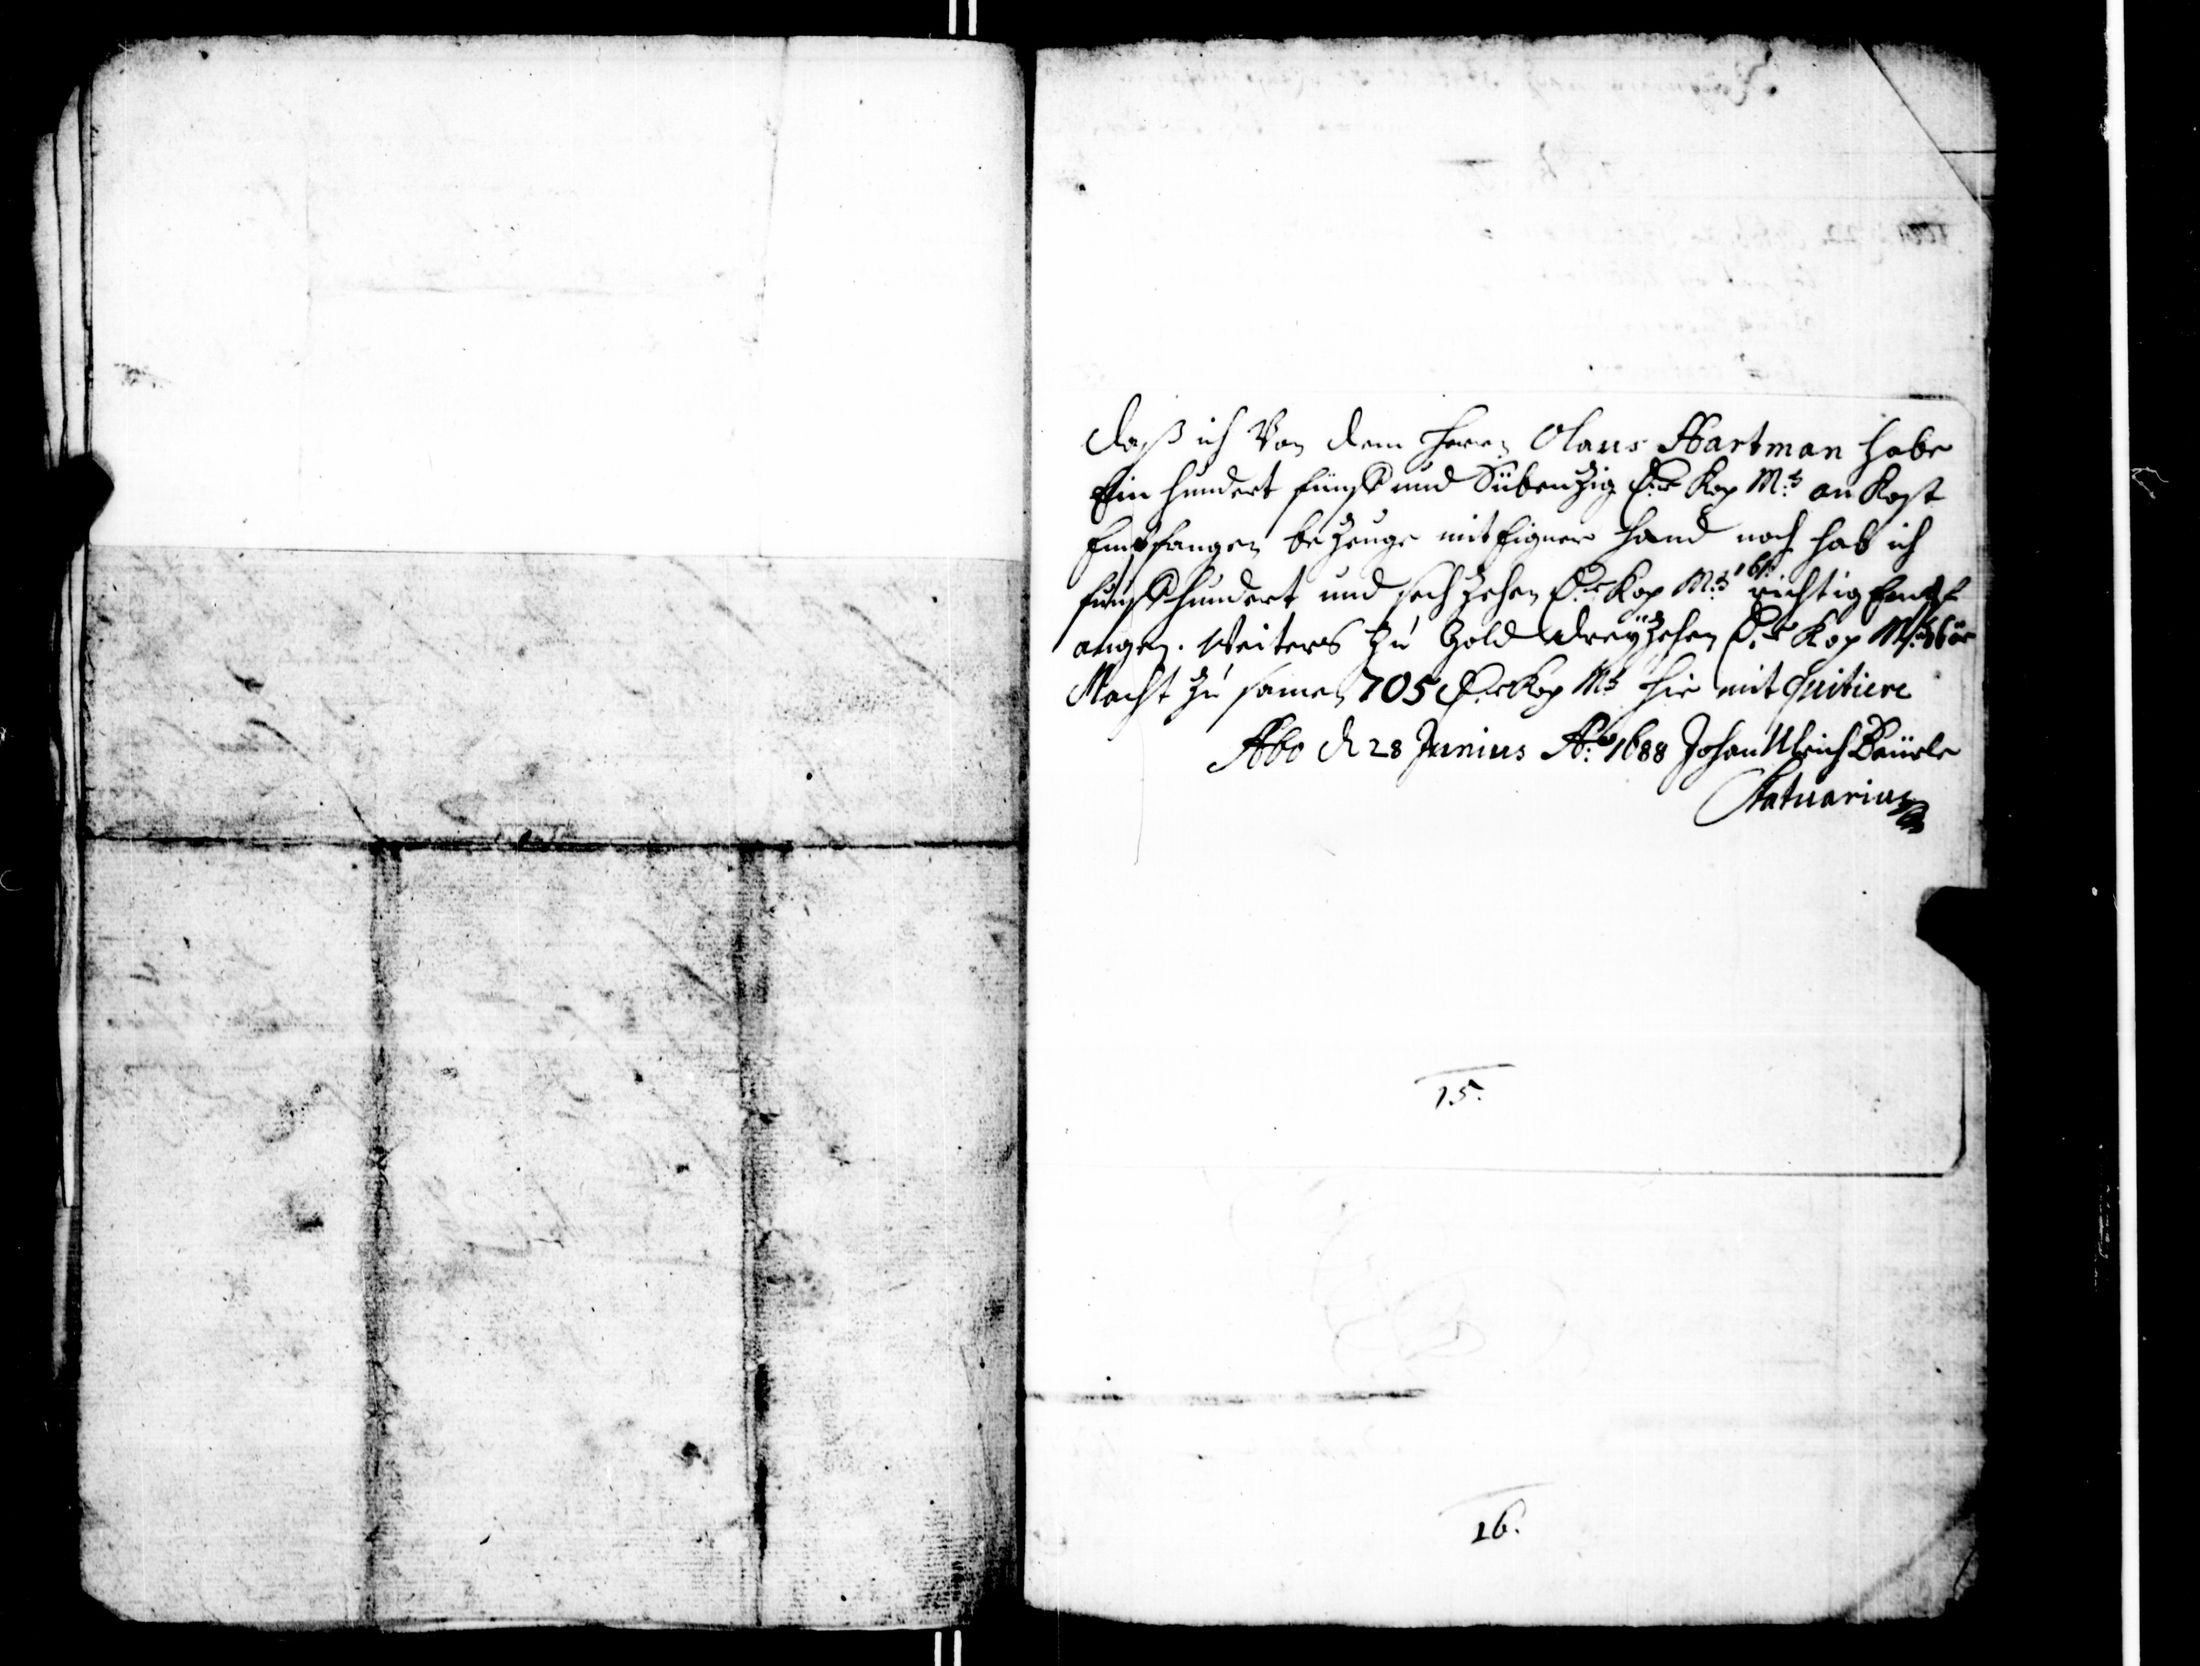 daß ich Von dem Herren Olaus Hartman habe
Ein hundert fünff und Sübenzig D.r Kop Mt: an Kost
Empfangen bezeuge mit Eigner hand noch hab ich
fünff hundert und sechzehen D.r Kop Mt: 16: richtig Empf
angen. Weiters zu Gold dreÿzehen D.r Kop Mt: 16 ör
Macht zu samen 705 D.r Kop Mt hie mit quitiere
Abo d 28 Junius Ao: 1688 Johan Ulrich Beürle
Statuarius
15.
16.